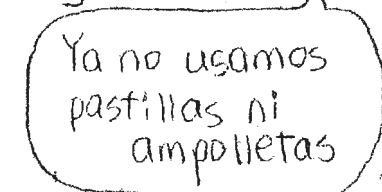 Ya no usamos
pastillas ni
ampolletas